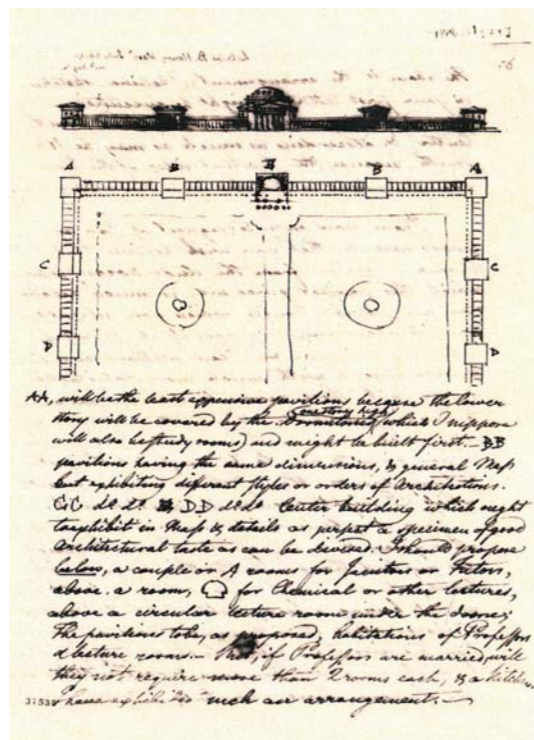 A B B A
C C
A A
AA, will be the least expensive pavilions because the lower
story will be covered by the Dormitories (which I suppose
one story high
will also be study rooms) and might be built first. – BB
pavilions having the same dimensions, & general Mass
but exhibiting different styles or orders of Architecture.
CC do do DD do do Center building which ought
to exhibit in Mass & details as perfect a specimen of good
Architectural taste as can be devised. I should propose
below, a couple or 4 rooms for Janitors or Tutors,
above a room, for Chemical or other lectures,
above a circular lecture room under the dome;
The pavilions to be, as proposed, habitations of Professors
& lecture rooms. – But, if Professors are married, will
they not require more than 2 rooms each, & a kitchen.
I have exhibited such an arrangement. –